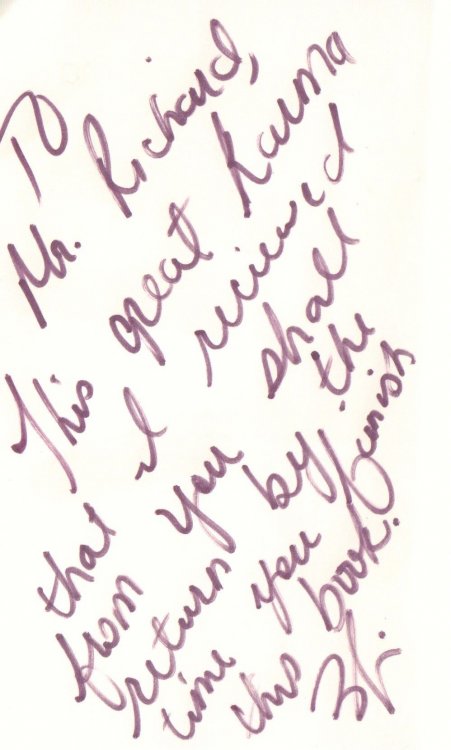 To
Mr. Richard,
This great Karma
that I recieved
from you shall
return by the
time you finish
this book.